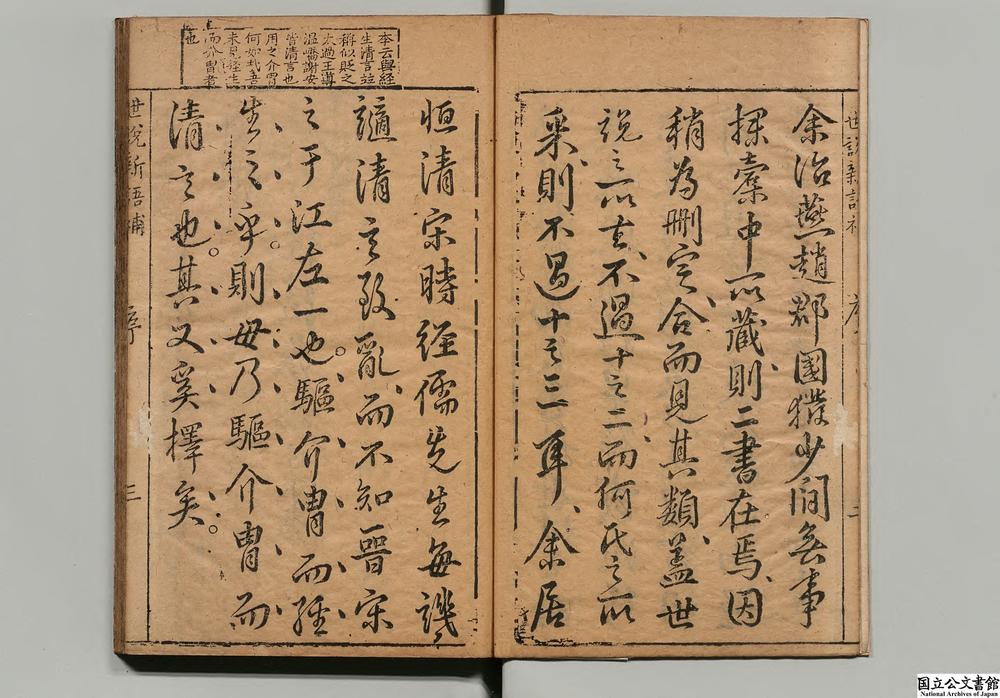 余治燕趙郡國獄少間無事
探槖中所藏則二書在焉因
稍為刪定合而見其類蓋世
說之所去不過十之二而何氏之所
采則不過十之三耳余居
世說新語補 序 二
李云與經
生清言註
稱似貶之
太過王導
温嶠謝安
皆清言也
用之介冑
何如哉吾
未見經生
而介冑者
也
恒清宋時經儒先生每譏
讁清言致亂而不知晉宋
之于江左一也驅介冑而經
生之乎則毋乃驅介冑而
清言也其又奚擇矣
世說新語補 序 三
国立公文書館
National Archives of Japan